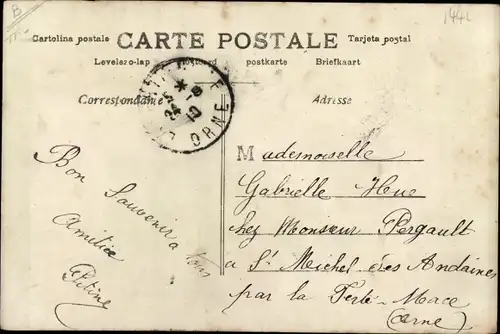 B
1442
Cartolina postale CARTE POSTALE Tarjeta postal
Levelező-lap Postcard postkarte Briefkaart
Correspondance Adresse
24-5 10
ORNE
Bon Souvenir a tous
Amitice
Mademoiselle
Gabrielle Hue
chez Monsieur Pergault
a St Michel des Andaines
par la Ferte-Mace
(orne)